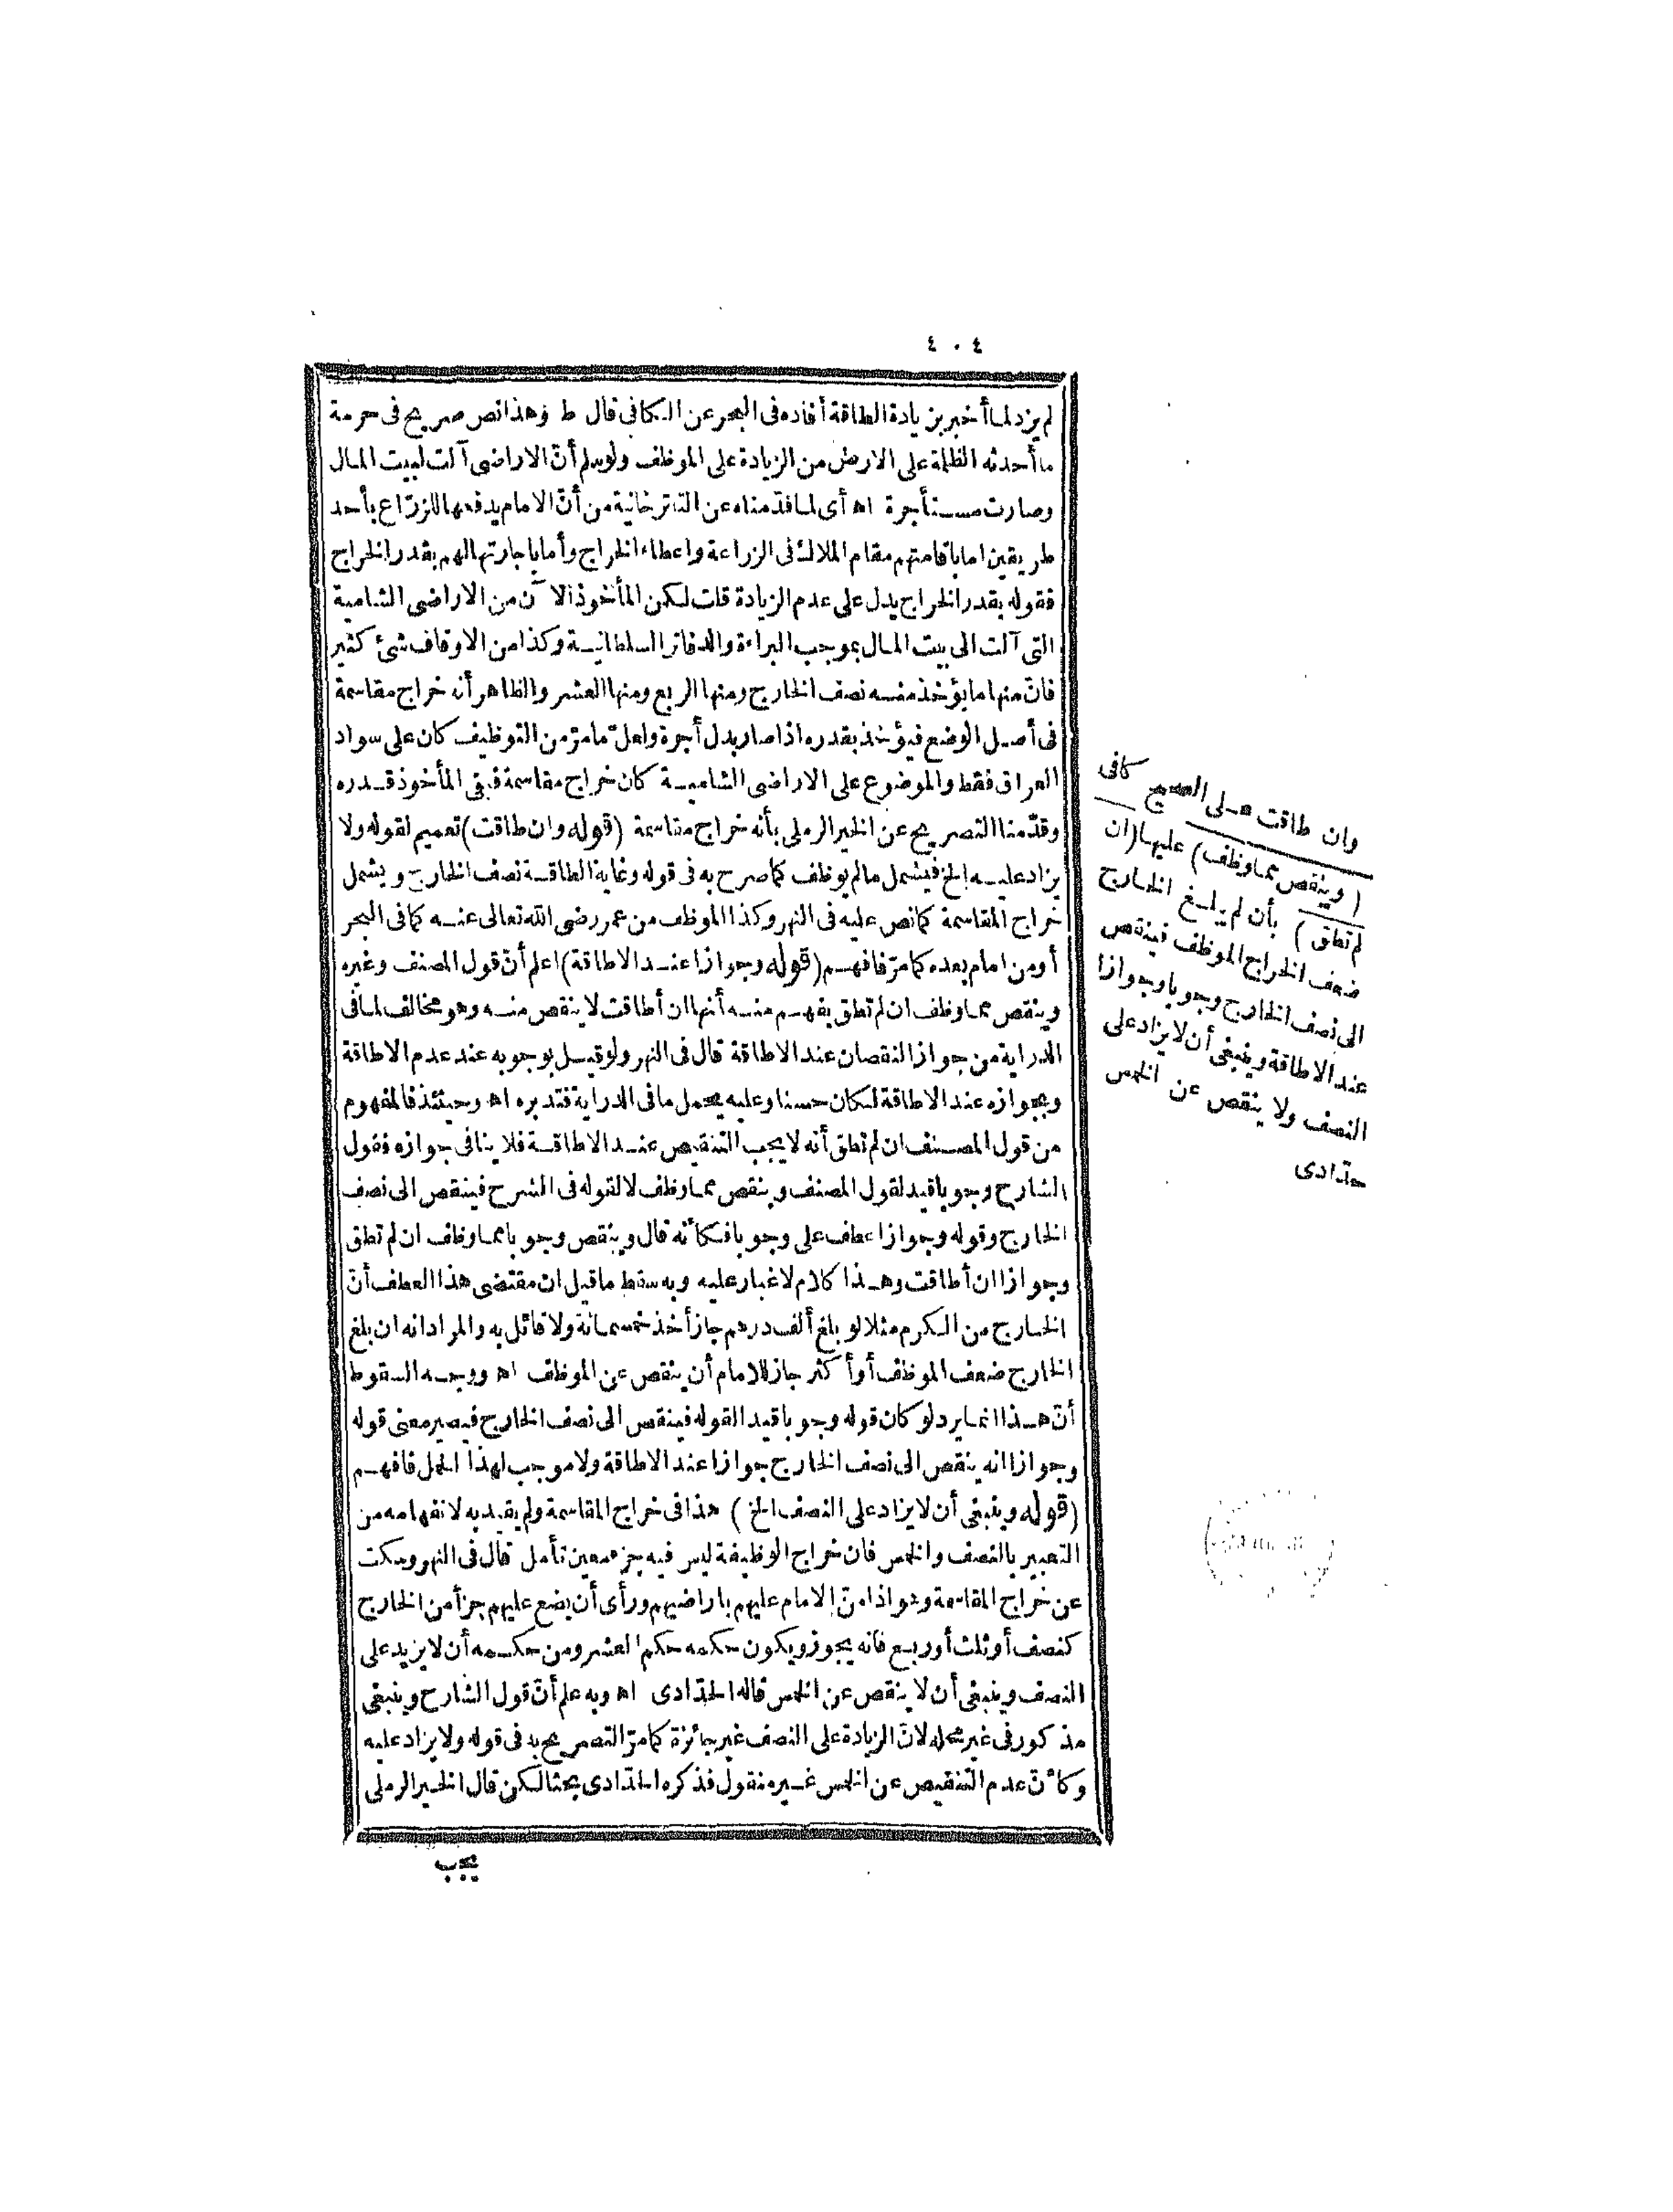 ٤٠٤
لم يزد لما أخبر بزيادة الطاقة أفاده فى البحر عن الكافى قال ط وهذا نص صريح فى حرمة
ما أحدثه الظلمة على الارض من الزيادة على الموظف ولو سلم أنّ الاراضى آلت لبيت المال
وصارت مستأجرة اه أى لما قدّمناه عن التترخانية من أنّ الامام يدفعها للزرّاع بأحد
طريقين اما باقامتهم مقام الملاك فى الزراعة واعطاء الخراج وأما باجارتها لهم بقدر الخراج
فقوله بقدر الخراج يدل على عدم الزيادة قلت لكن المأخوذ الآن من الاراضى الشامية
التى آلت الى بيت المال بموجب البراءة والدفاتر السلطانية وكذا من الاوقاف شئ كثير
فانّ منها ما يؤخذ منه نصف الخارج ومنها الربع ومنها العشر والظاهر أنه خراج مقاسمة
فى أصل الوضع فيؤخذ بقدره اذا صار بدل أجرة ولعلّ ما مرّ من التوظيف كان على سواد
العراق فقط والموضوع على الاراضى الشامية كان خراج مقاسمة فبقى المأخوذ قدره
وقدّمنا التصريح عن الخير الرملى بأنه خراج مقاسمة (قوله وان طاقت) تعميم لقوله ولا
يزاد عليه الخ فيشمل ما لم يوظف كما صرح به فى قوله وغاية الطاقة نصف الخارج ويشمل
خراج المقاسمة كما نص عليه فى النهر وكذا الموظف من عمر رضى الله تعالى عنه كما فى البحر
أو من امام بعده كما مرّ فافهم (قوله وجوازا عند الاطاقة) اعلم أنّ قول المصنف وغيره
وينقص مما وظف ان لم تطق يفهم منه أنها ان أطاقت لا ينقص منه وهو مخالف لما فى
الدراية من جواز النقصان عند الاطاقة قال فى النهر ولو قيل بوجوبه عند عدم الاطاقة
وبجوازه عند الاطاقة لكان حسنا وعليه يحمل ما فى الدراية فتدبره اه وحينئذ فالمفهوم
من قول المصنف ان لم تطق أنه لا يجب التنقيص عند الاطاقة فلا ينافى جوازه فقول
الشارح وجوبا قيد لقول المصنف وينقص مما وظف لا لقوله فى الشرح فينقص الى نصف
الخارج وقوله وجوازا عطف على وجوبا فكأنه قال وينقص وجوبا مما وظف ان لم تطق
وجوازا ان أطاقت وهذا كلام لا غبار عليه وبه سقط ما قيل ان مقتضى هذا العطف أنّ
الخارج من الكرم مثلا لو بلغ ألف درهم جاز أخذ خمسمائة ولا قائل به والمراد انه ان بلغ
الخارج ضعف الموظف أو أكثر جاز للامام أن ينقص عن الموظف اه ووجه السقوط
أنّ هذا انما يرد لو كان قوله وجوبا قيدا لقوله فينقص الى نصف الخارج فيصير معنى قوله
وجوازا انه ينقص الى نصف الخارج جوازا عند الاطاقة ولا موجب لهذا الحمل فافهم
(قوله وينبغى أن لا يزاد على النصف الخ) هذا فى خراج المقاسمة ولم يقيد به لانفهامه من
التعبير بالنصف والخمس فان خراج الوظيفة ليس فيه جزء معين تأمل قال فى النهر وسكت
عن خراج المقاسمة وهو اذا منّ الامام عليهم باراضيهم ورأى أن يضع عليهم جزأ من الخارج
كنصف أو ثلث أو ربع فانه يجوز ويكون حكمه حكم العشر ومن حكمه أن لا يزيد على
النصف وينبغى أن لا ينقص عن الخمس قاله الحدّادى اه وبه علم أنّ قول الشارح وينبغى
مذكور فى غير محله لانّ الزيادة على النصف غير جائزة كما مرّ التصريح به فى قوله ولا يزاد عليه
وكأنّ عدم التنقيص عن الخمس غير منقول فذكره الحدّادى بحثا لكن قال الخير الرملى
يجب
وان طاقت على الصحيح كافى
(وينقص مما وظف) عليها (ان
لم تطق) بأن لم يبلغ الخارج
ضعف الخراج الموظف فينقص
الى نصف الخارج وجوبا وجوازا
عند الاطاقة وينبغى أن لا يزاد على
النصف ولا ينقص عن الخمس
حدّادى